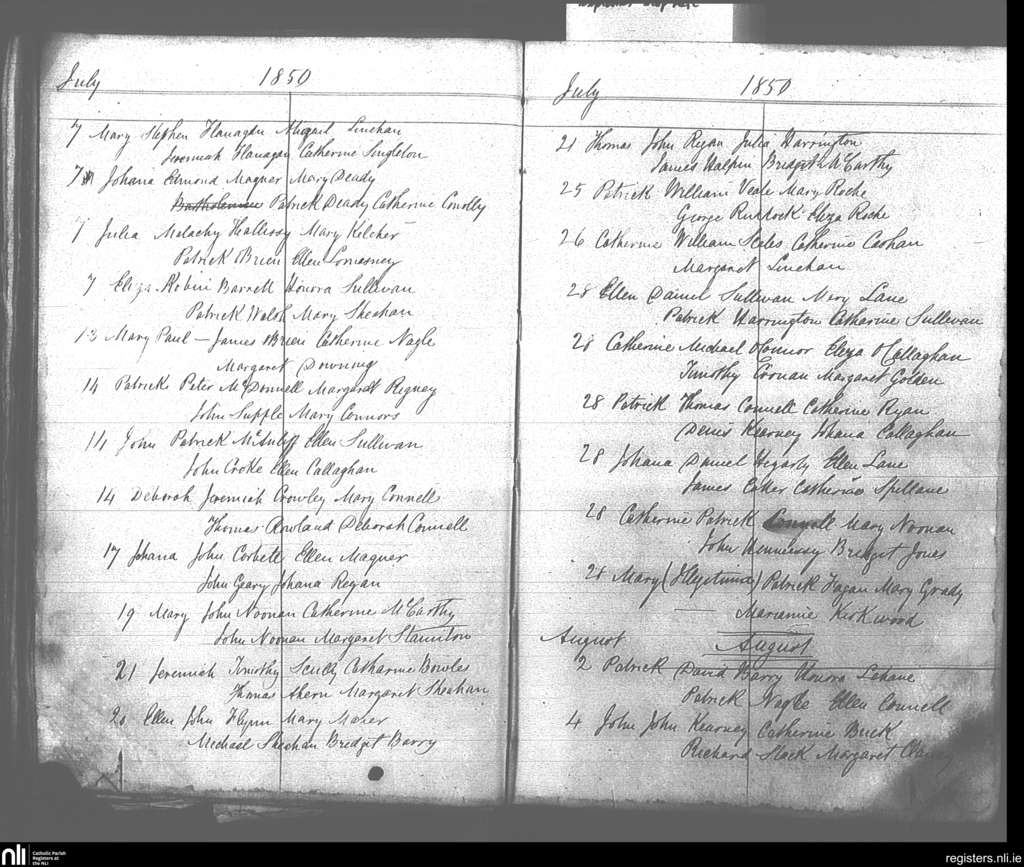 July 1850
7 Mary Stephen Flanagan Abigail Linehan
Jeremiah Flanagan Catherine Singleton
7 Johana Edmond Magner Mary Deady
Bartholemew Patrick Deady Catherine Connolly
7 Julia Malachy Hallissy Mary Kelcher
Patrick OBrien Ellen
7 Eliza Robin Barrett Honora Sullivan
Patrick Walsh Mary Sheahan
13 Mary Paul — James OBrien Catherine Nagle
Margaret Downing
14 Patrick Peter McDonnell Margaret Rigney
John Supple Mary Connors
14 John Patrick McAuliff Ellen Sullivan
John Croke Ellen Callaghan
14 Deborah Jeremiah Crowley Mary Connell
Thomas Rowland Deborah Connell
17 Johana John Corbett Ellen Magner
John Geary Johana Regan
19 Mary John Noonan Catherine McCarthy
John Noonan Margaret Staunton
21 Jeremiah Timothy Scully Catharine Bowles
Thomas Ahern Margaret Sheahan
20 Ellen John Flynn Mary Maher
Michael Sheahan Bridget Barry
July 1850
21 Thomas John Ryan Julia Harrington
James Halpin Bridget McCarthy
25 Patrick William Veale Mary Roche
George Ruddock Eliza Roche
26 Catherine William Catherine Cashan
Margaret Linehan
28 Ellen Daniel Sullivan Mary Lane
Patrick Harrington Catharine Sullivan
28 Catherine Michael OConnor Eliza OCallaghan
Timothy Cronan Margaret Golden
28 Patrick Thomas Connell Catherine Ryan
Denis Kearney Johana Callaghan
28 Johana Daniel Hegarty Ellen Lane
James Catherine Spillane
28 Catherine Patrick Connell Mary Noonan
John Hennessy Bridget Jones
28 Mary (Illegitimate) Patrick Fagan Mary Grady
Marianne Kirkwood
August August
2 Patrick David Barry Honora Lehane
Patrick Nagle Ellen Connell
4 John John Kearney Catherine Buck
Richard Slack Margaret
nli Catholic Parish
Registers at
the NLI
registers.nli.ie